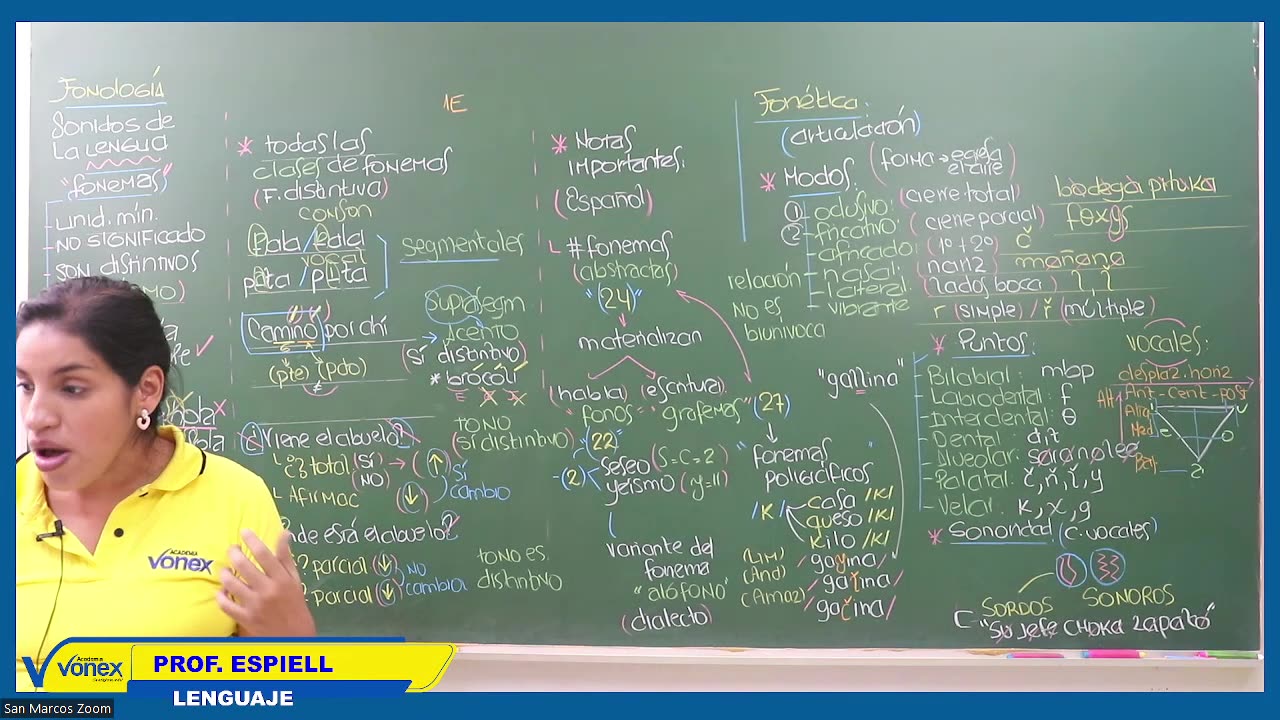 Fonología
Sonidos de
La LENGUA
"fonemas"
unid. mín.
NO SIGNIFICADO
SON distintivos
1E
* todas las
clases de fonemas
(F. distintiva)
conson
Pala / Bala
vocal
pata / pita
segmentales
suprasegm
Camino por chi
acento
(sí distintivo)
* brócoli
(pie) (pato)
¿Viene el abuelo?
tono
sí distintivo
¿? total (SÍ) → (↑) sí
(NO)
Afirmac (↓) cambio
nde está el abuelo?
? parcial (↓) NO
? parcial (↓) cambia
tono es
distintivo
* Notas
importantes:
(Español)
# fonemas
(abstractas)
"(24)"
materializan
(habla) (escritura)
"fonos" "grafemas" (27)
(22)
-(2)
seseo (S=C=Z)
yeísmo (y=ll)
variante del
fonema
"alófono"
(dialecto)
relación
NO es
biunívoca
"gallina"
"fonemas
poligráficos"
/K/
casa /K/
queso /K/
kilo /K/
(Lim) /gayina/
(And) /gaľina/
(Amaz) /gaŷina/
Fonética:
(articulación)
* Modos: (forma → egresa
el aire)
① oclusivo: (cierre total) bodega pituka
② fricativo (cierre parcial) foxθs
africado (1º + 2º) č
nasal: (nariz) mañana
lateral: (lados boca) l, ľ
vibrante r (simple) / ř (múltiple)
* Puntos:
Bilabial: mbp
Labiodental: f
Interdental: θ
Dental: d,t
Alveolar: saranalee
Palatal: č, ñ, ľ, y
Velar: k, x, g
vocales:
desplaz. horiz
Ant - cent - post
* Sonoridad (C. vocales)
SORDOS SONOROS
C "Su jefe CHOKA zapato"
Academia
vonex
PROF. ESPIELL
LENGUAJE
San Marcos Zoom